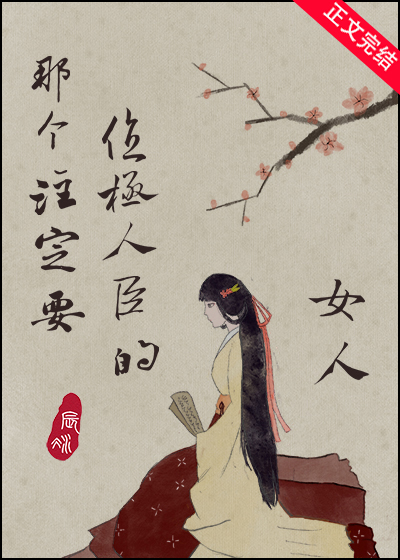 那个注定要
位極人臣的
女人
正文完结